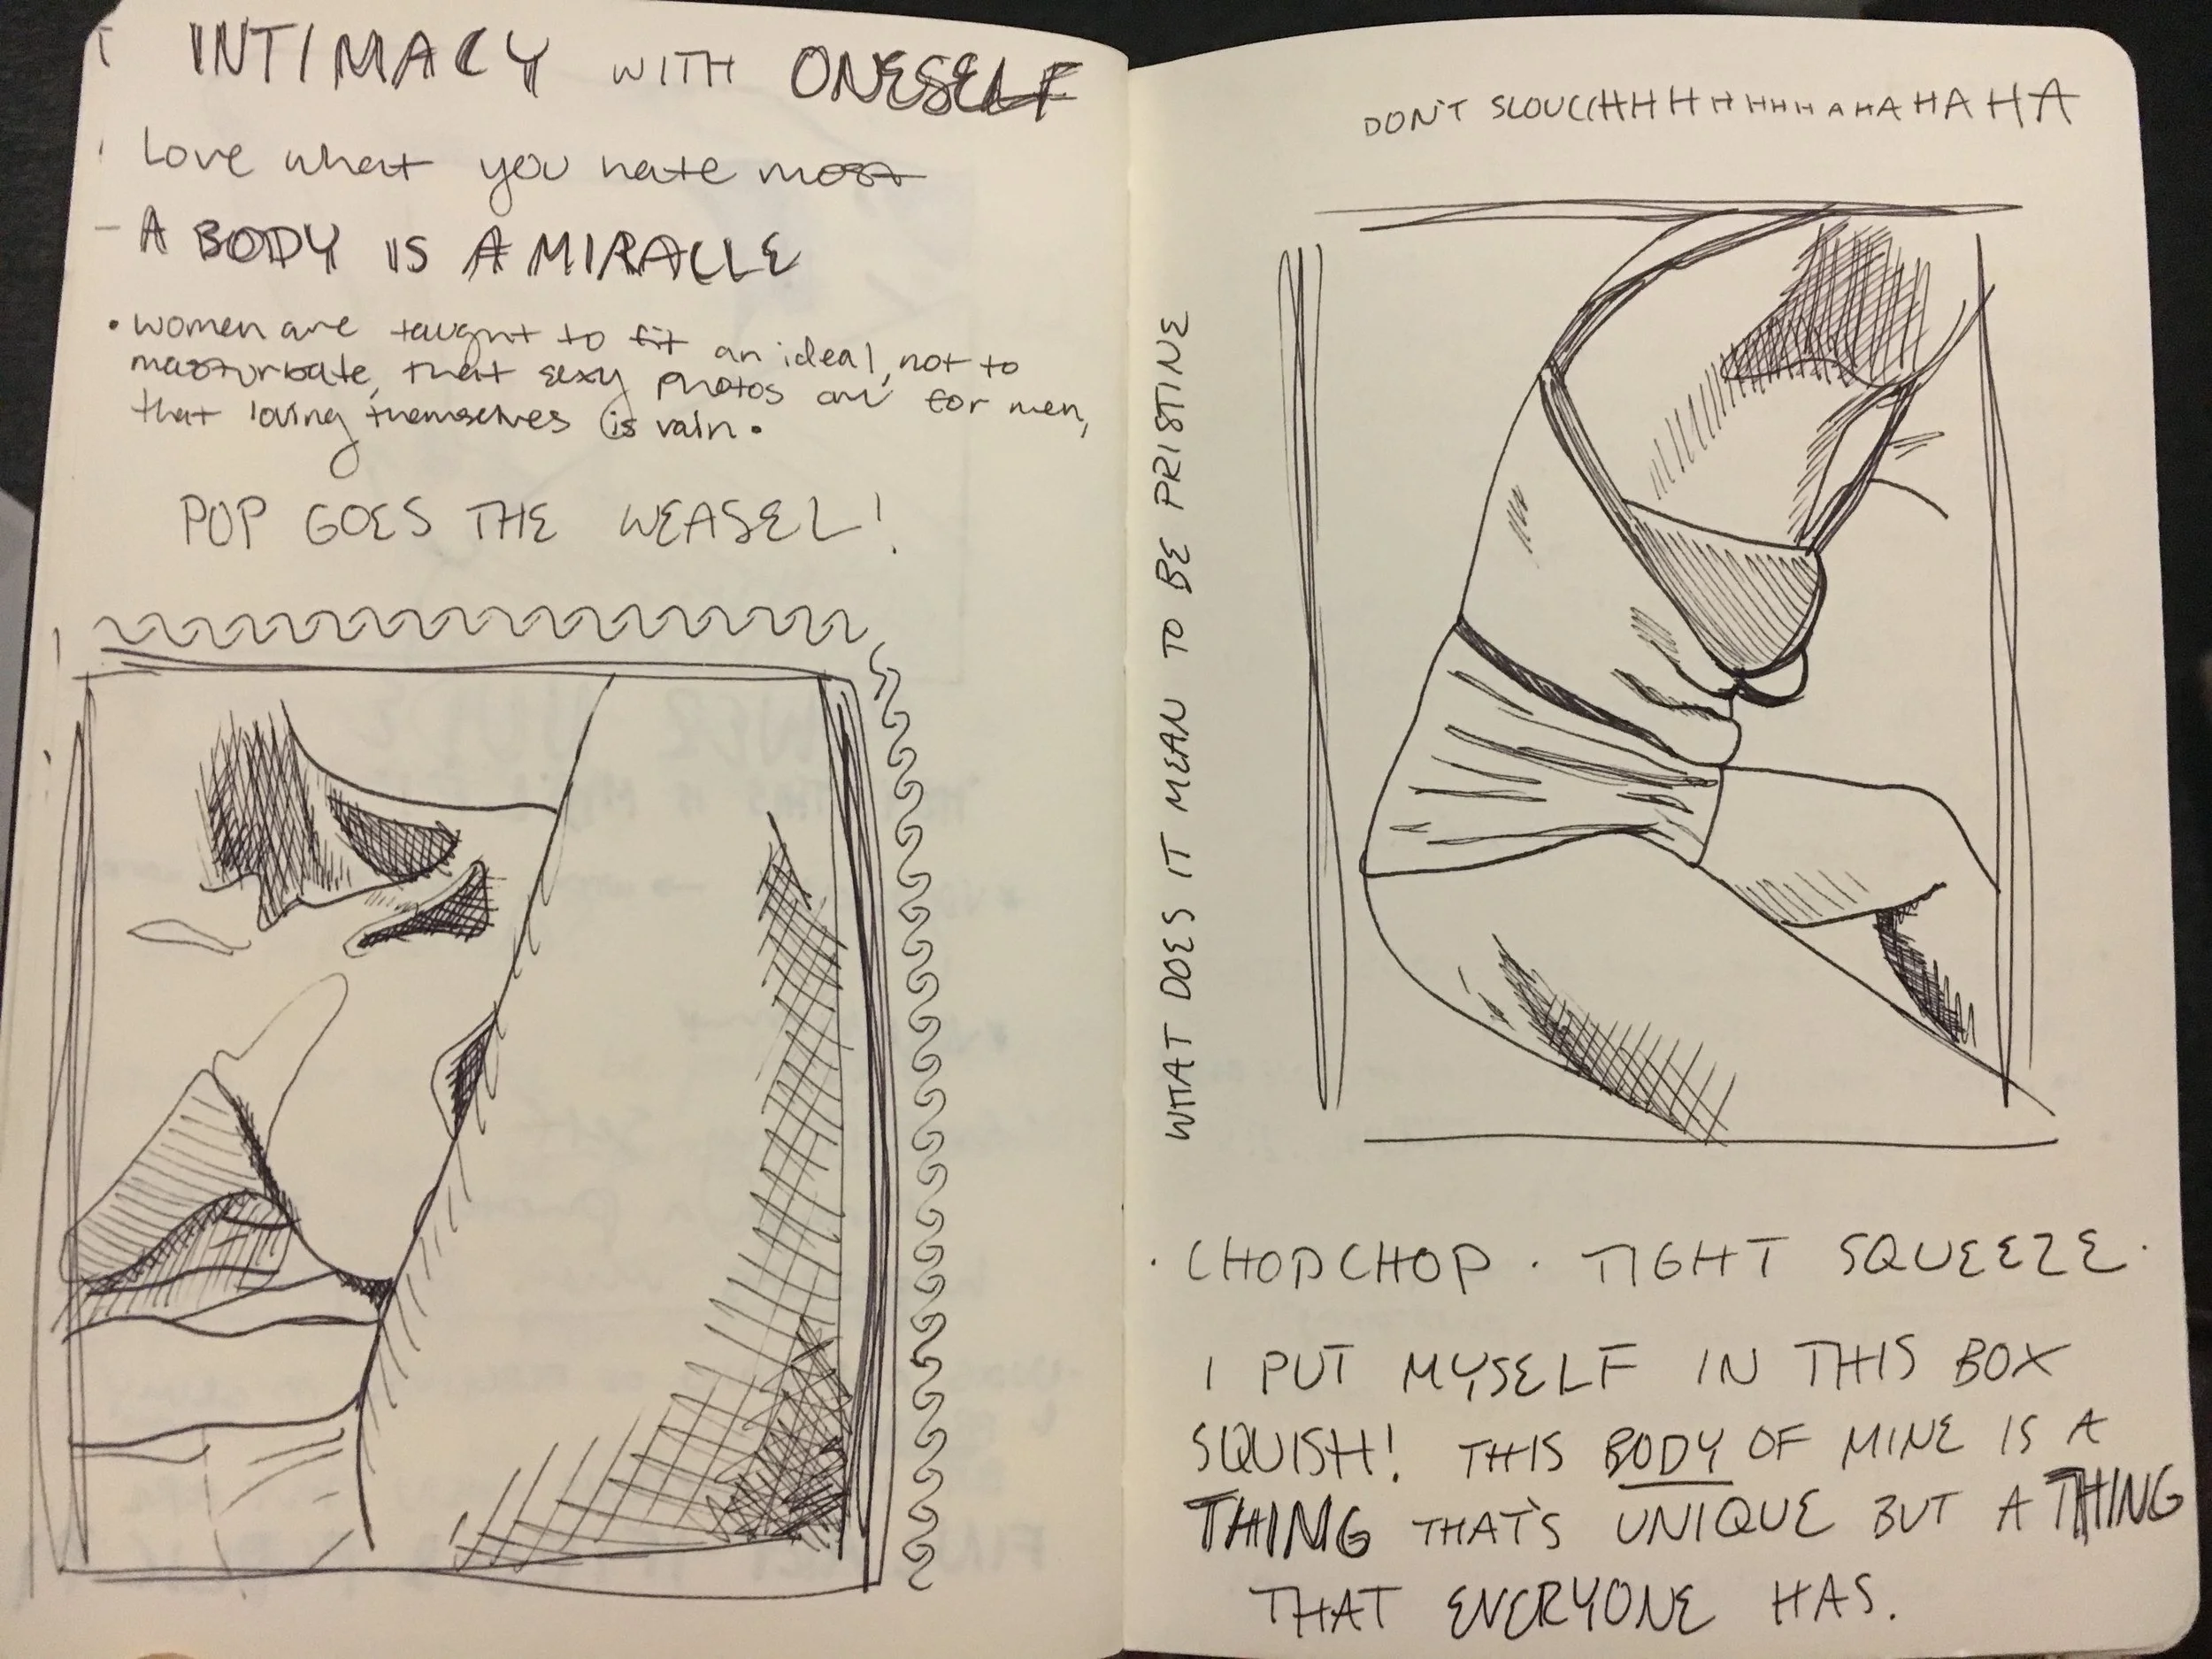 INTIMACY WITH ONESELF
Love what you hate most
- A BODY IS A MIRACLE
• women are taught to fit an ideal, not to
masturbate, that sexy photos are for men,
that loving themselves is vain.
POP GOES THE WEASEL!
DON'T SLOUCHHHHHHHHAHAHAHA
WHAT DOES IT MEAN TO BE PRISTINE
· CHOP CHOP · TIGHT SQUEEZE ·
I PUT MYSELF IN THIS BOX
SQUISH! THIS BODY OF MINE IS A
THING THAT'S UNIQUE BUT A THING
THAT EVERYONE HAS.